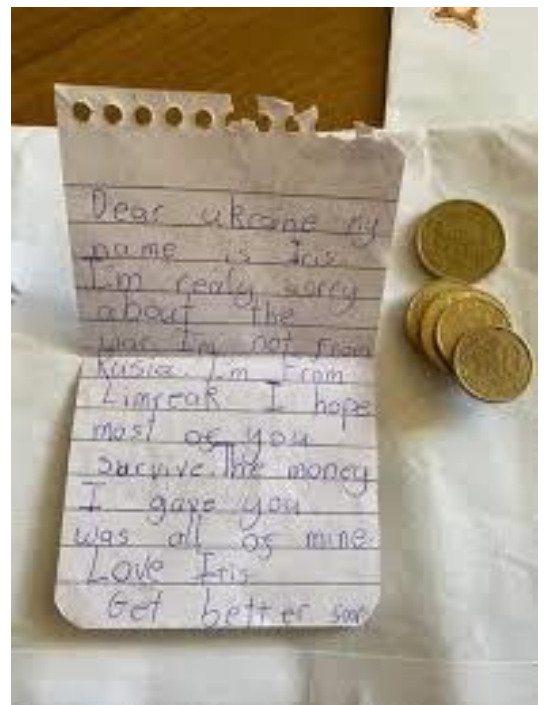 Dear ukraine my
name is Iris
I'm realy sorey
about the
war. I'm not From
Rusia. I'm From
Limreak I hope
most of you
survive. The money
I gave you
was all of mine.
Love Iris
Get better soon